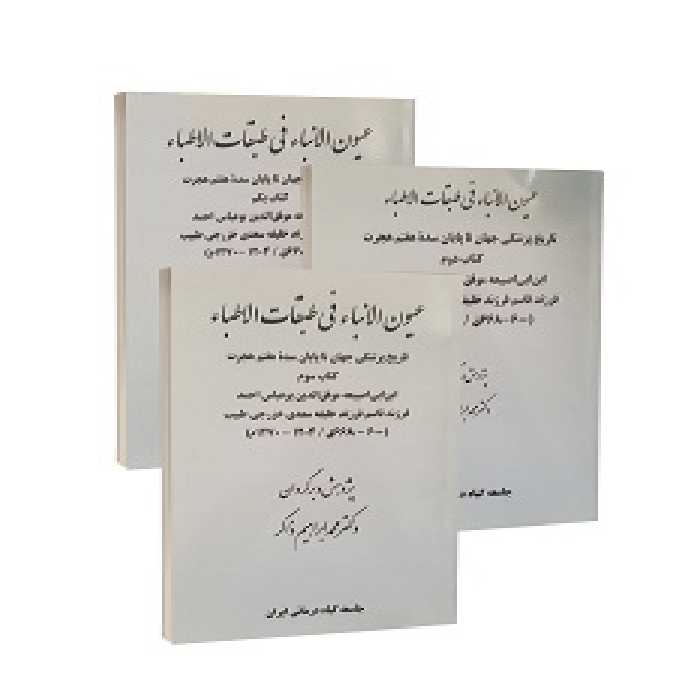 عیون الانباء فی طبقات الاطباء
جهان تا پایان سدهٔ هفتم هجرت
کتاب یکم
موفق‌الدین بوعباس احمد
خلیفه سعدی خزرجی طبیب
عیون الانباء فی طبقات الاطباء
تاریخ پزشکی جهان تا پایان سدهٔ هفتم هجرت
کتاب دوم
ابن ابی اصیبعه موفق
فرزند قاسم فرزند
(۶۰۰ – ۶۶۸ق /
پژوهش
دکتر محمد ابراهیم
جامعه گیاه
عیون الانباء فی طبقات الاطباء
تاریخ پزشکی جهان تا پایان سدهٔ هفتم هجرت
کتاب سوم
ابن ابی اصیبعه موفق‌الدین بوعباس احمد
فرزند قاسم فرزند خلیفه سعدی خزرجی طبیب
(۶۰۰ – ۶۶۸ق / ۱۲۰۴ – ۱۲۷۰م)
پژوهش و برگردان
دکتر محمد ابراهیم ذاکر
جامعه گیاه درمانی ایران